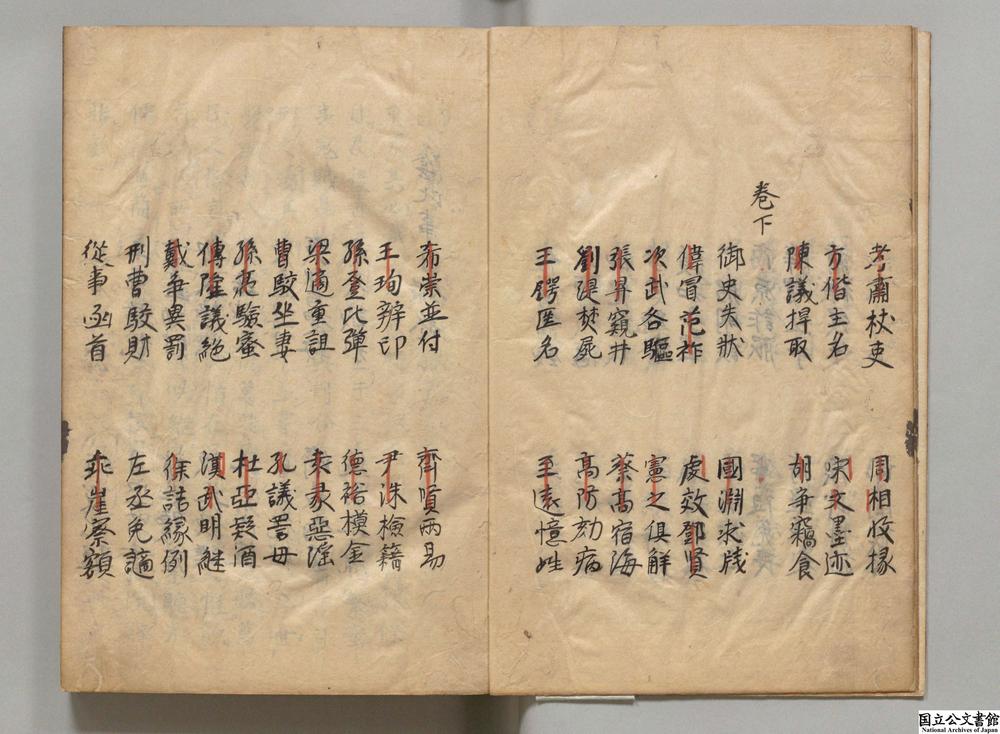 孝肅杖吏　周相收掾
方偕主名　宋文墨迹
陳議捍取　胡爭竊食
卷下
御史失狀　國淵求牋
偉冒范祚　處效鄧賢
次武各驅　憲之俱解
張昇窺井　蔡高宿海
劉湜焚屍　高防劾病
王鍔匿名　至遠憶姓
希崇並付　齊賢兩易
王珣辨印　尹洙檢籍
孫登比彈　德裕模金
梁適重詛　袁彖惡淫
曹駮坐妻　孔議罵母
孫亮驗蜜　杜亞疑酒
傅隆議絕　漢武明継
戴爭異罰　徐詰緣例
刑曹駮財　左丞免讁
從事函首　乖崖察額
国立公文書館
National Archives of Japan